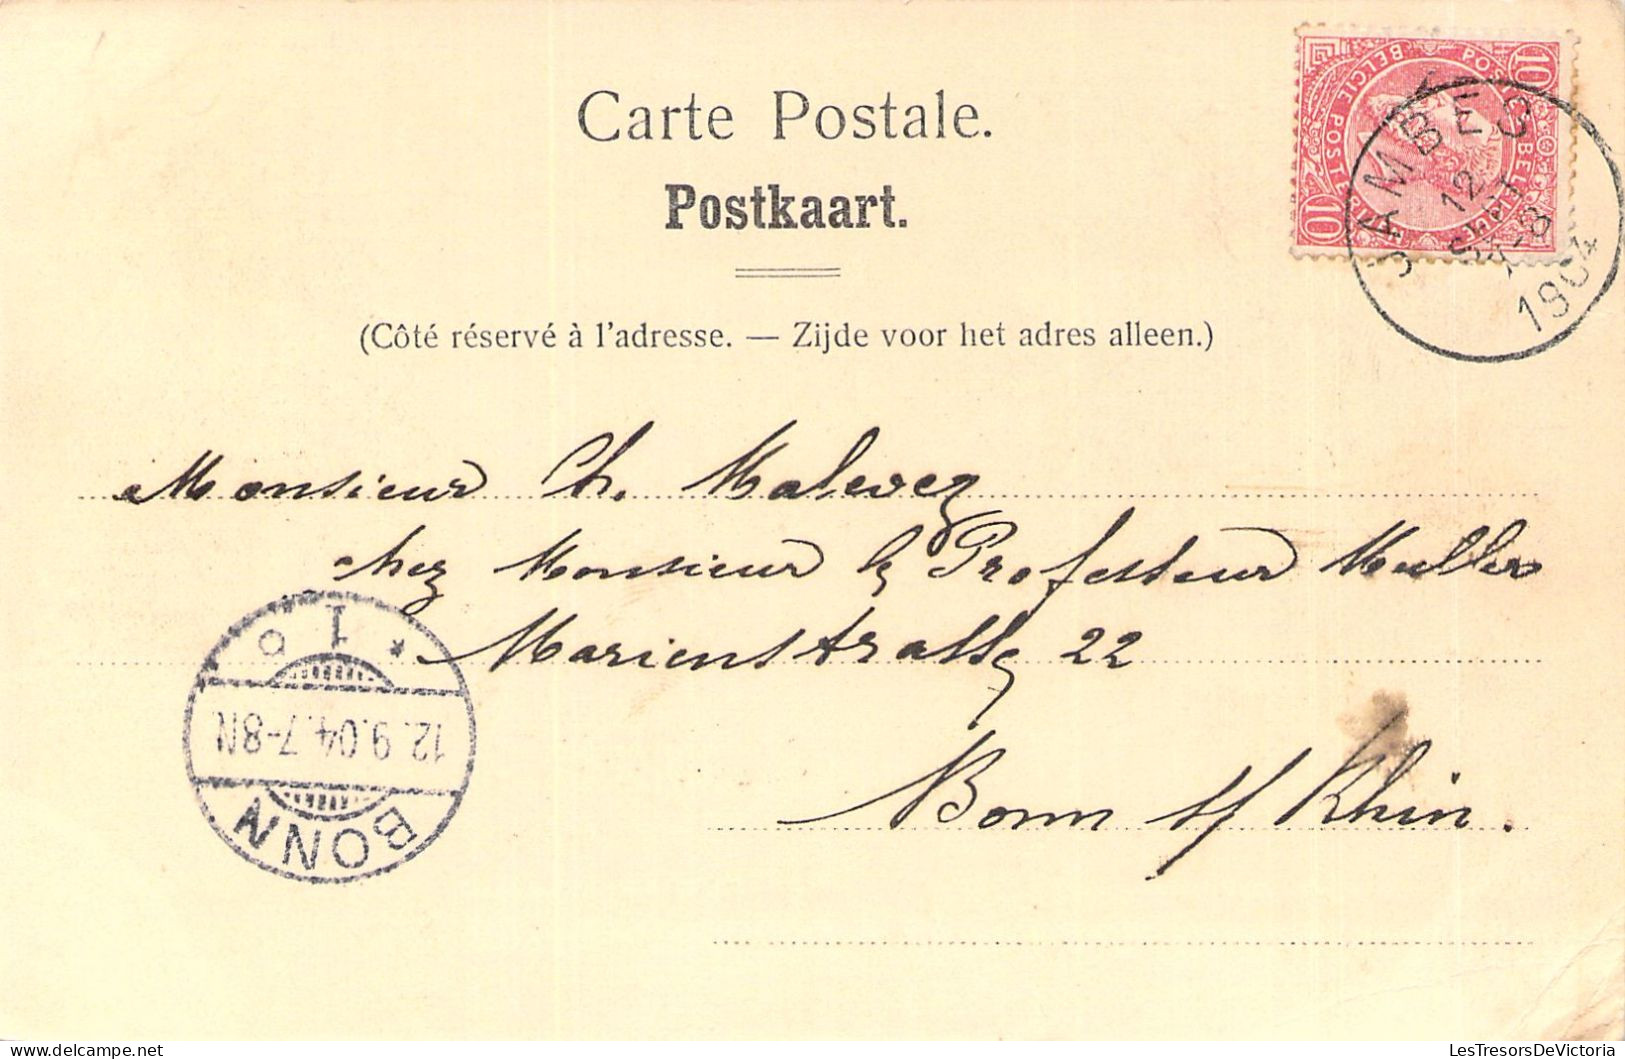 Carte Postale.
Postkaart.
(Côté réservé à l'adresse. — Zijde voor het adres alleen.)
10 POSTES BELGIQUE 10
BELGIE POSTERIJEN
JAMBES
12
SEPT
7-8
1904
Monsieur Ch. Malevez
chez Monsieur le Professeur Muller
Marienstrasse 22
Bonn s/ Rhin.
BONN
12.9.04.7-8N
* 1 o
LesTresorsDeVictoria